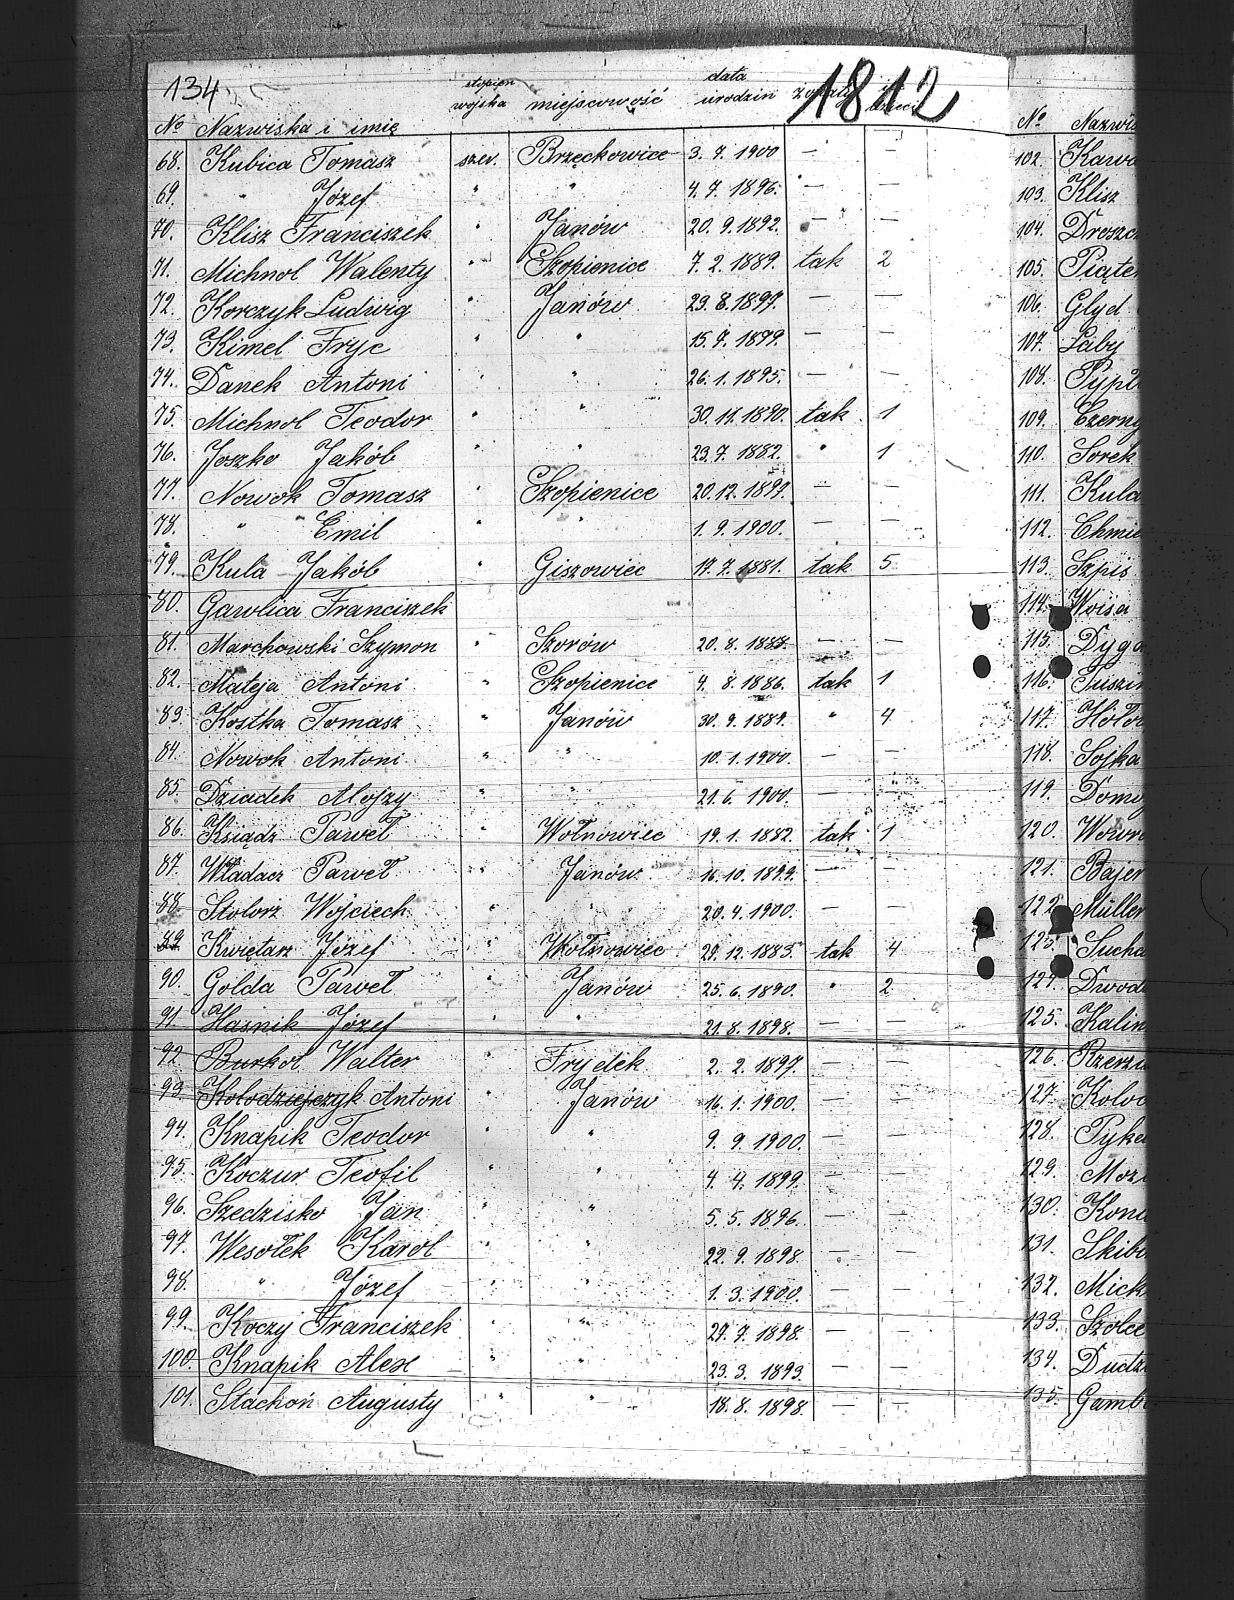 134
1812
№ Nazwiska i imię stopień wojska miejscowość data urodzin
68. Kubica Tomasz szer. Brzęckowice 3. 7. 1900 — —
69. " Józef " " 4. 7. 1896. — —
70. Klisz Franciszek " Janów 20. 9. 1892. — —
71. Michnol Walenty " Szopienice 7. 2. 1889. tak 2
72. Korczyk Ludwig " Janów 29. 8. 1897. — —
73. Kimel Fryc " " 15. 7. 1899. — —
74. Danek Antoni " " 26. 1. 1895. — —
75. Michnol Teodor " " 30. 11. 1890. tak 1
76. Joszko Jakób " " 23. 7. 1882. " 1
77. Nowok Tomasz " Szopienice 20. 12. 1899. — —
78. " Emil " " 1. 9. 1900. — —
79. Kula Jakób " Giszowiec 17. 7. 1881. tak 5
80. Gawlica Franciszek
81. Marchowski Szymon " 20. 8. — —
82. Mateja Antoni " Szopienice 4. 8. 1886. tak 1
83. Kostka Tomasz " Janów 30. 9. 1889. " 4
84. Nowok Antoni " " 10. 1. 1900. — —
85. Dziadek Alojzy " " 21. 6. 1900. — —
86. Ksiądz Paweł " Wełnowiec 19. 1. 1882. tak 1
87. Władacz Paweł " Janów 16. 10. 1899. — —
88. Stolorz Wojciech " " 20. 4. 1900. — —
89. Kwiętarz Józef " Wełnowiec 29. 12. 1885. tak 4
90. Golda Paweł " Janów 25. 6. 1890. " 2
91. Hasnik Józef " " 21. 8. 1898. — —
92. Burkot Walter " Frydek 2. 2. 1897. — —
93. Kolodziejczyk Antoni " Janów 16. 1. 1900. — —
94. Knapik Teodor " " 9. 9. 1900. — —
95. Koczur Teofil " " 4. 4. 1899. — —
96. Szedzisko Jan " " 5. 5. 1896. — —
97. Wesołek Karol " " 22. 9. 1898. — —
98. " Józef " " 1. 3. 1900. — —
99. Koczy Franciszek " " 29. 7. 1898. — —
100. Knapik Alex " " 23. 3. 1893. — —
101. Stachoń Augusty " " 18. 8. 1898. — —
№ Nazwis
102. Kawa
103. Klisz
104. Droszc
105. Piąte
106. Glyd
107. Laby
108. Pypł
109. Czerny
110. Sorek
111. Kula
112. Chmie
113. Szpis
114. Woisa
115. Dyga
116. Tuszin
117. Hoło
118. Sojka
119. Domo
120. Wowro
121. Bajer
122. Müller
123. Sucha
124. Dwod
125. Kalin
126. Rzerzu
127. Koloc
128. Pyka
129. Moz
130. Kon
131. Skib
132. Mick
133. Szolc
134. Dudz
135. Gamb